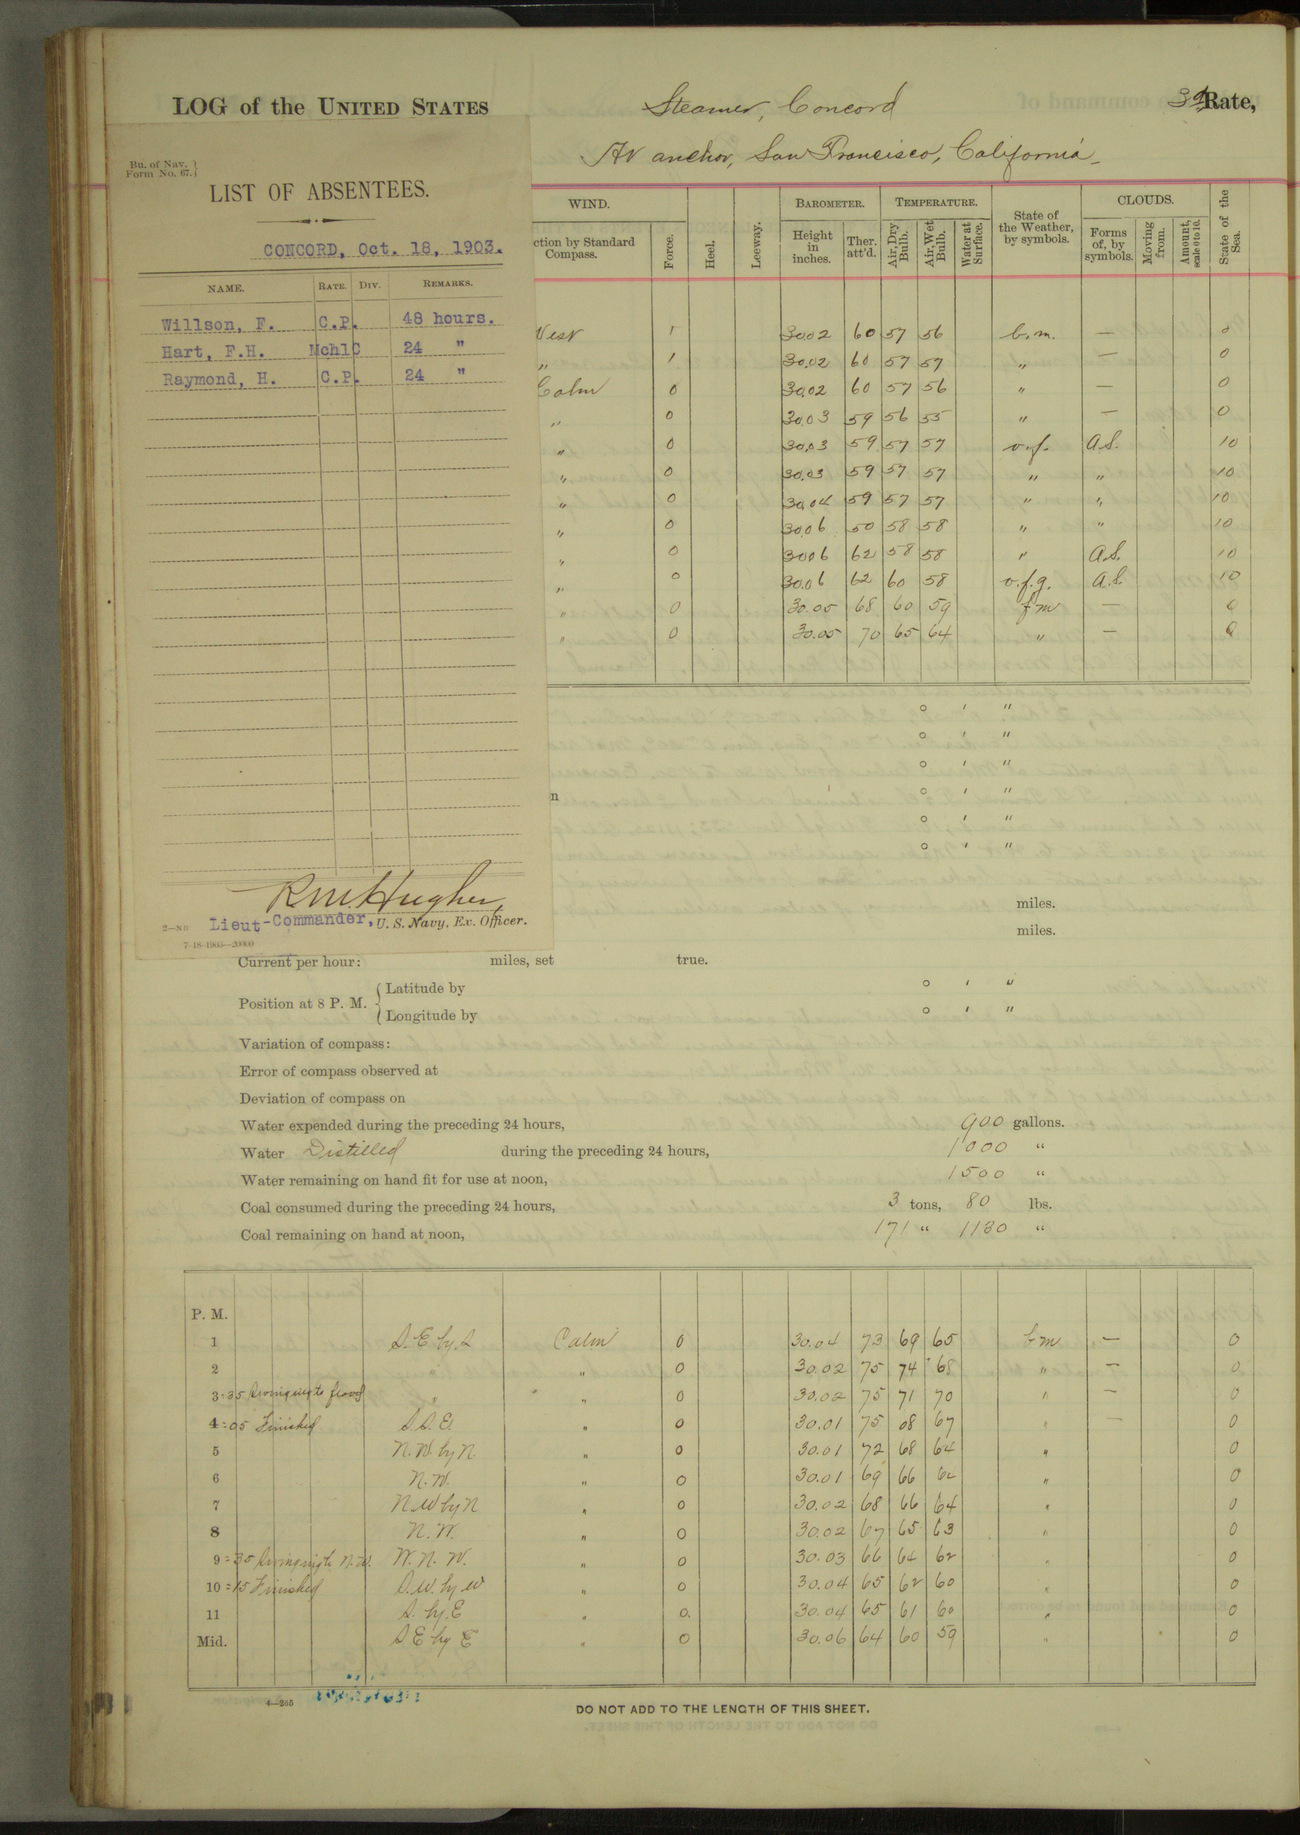 LOG of the UNITED STATES Steamer, Concord 3d Rate,
At anchor, San Francisco, California
Bu. of Nav.
Form No. 67.
LIST OF ABSENTEES.
CONCORD, Oct. 18, 1903.
NAME. RATE. DIV. REMARKS.
Willson, F. C.P. 48 hours.
Hart, F.H. Mchl C 24 "
Raymond, H. C.P. 24 "
Lieut-Commander, U. S. Navy, Ex. Officer.
2—NB
7-18-1903—20000
WIND. BAROMETER. TEMPERATURE. State of the Weather, by symbols. CLOUDS. State of the Sea.
ction by Standard Compass. Force. Heel. Leeway. Height in inches. Ther. att'd. Air, Dry Bulb. Air, Wet Bulb. Water at Surface. Forms of, by symbols. Moving from. Amount, scale 0 to 10.
West 1 30.02 60 57 56 b.m. — 0
" 1 30.02 60 57 57 " — 0
Calm 0 30.02 60 57 56 " — 0
" 0 30.03 59 56 55 " — 0
" 0 30.03 59 57 57 o.f. A.S. 10
" 0 30.03 59 57 57 " " 10
" 0 30.04 59 57 57 " " 10
" 0 30.06 50 58 58 " " 10
" 0 30.06 62 58 58 " A.S. 10
" 0 30.06 62 60 58 o.f.g. A.S. 10
" 0 30.05 68 60 59 f m — 0
" 0 30.05 70 65 64 " — 0
° ' "
° ' "
° ' "
n ° ' "
° ' "
° ' "
miles.
miles.
Current per hour: miles, set true.
Position at 8 P. M. Latitude by ° ' "
Longitude by ° ' "
Variation of compass:
Error of compass observed at
Deviation of compass on
Water expended during the preceding 24 hours, 900 gallons.
Water Distilled during the preceding 24 hours, 1000 "
Water remaining on hand fit for use at noon, 1500 "
Coal consumed during the preceding 24 hours, 3 tons, 80 lbs.
Coal remaining on hand at noon, 171 " 1130 "
P. M.
1 S.E. by S Calm 0 30.04 73 69 65 b m — 0
2 " " 0 30.02 75 74 68 " — 0
3:35 Swinging to flood " " 0 30.02 75 71 70 " — 0
4:05 Finished S.S.E. " 0 30.01 75 68 67 " — 0
5 N.W. by N " 0 30.01 72 68 64 " 0
6 N.W. " 0 30.01 69 66 62 " 0
7 N.W by N " 0 30.02 68 66 64 " 0
8 N.W. " 0 30.02 67 65 63 " 0
9:35 Swinging to N.W. W.N.W. " 0 30.03 66 64 62 " 0
10:15 Finished S.W. by W " 0 30.04 65 62 60 " 0
11 S. by E " 0. 30.04 65 61 60 " 0
Mid. S E by E " 0 30.06 64 60 59 " 0
4—265
DO NOT ADD TO THE LENGTH OF THIS SHEET.